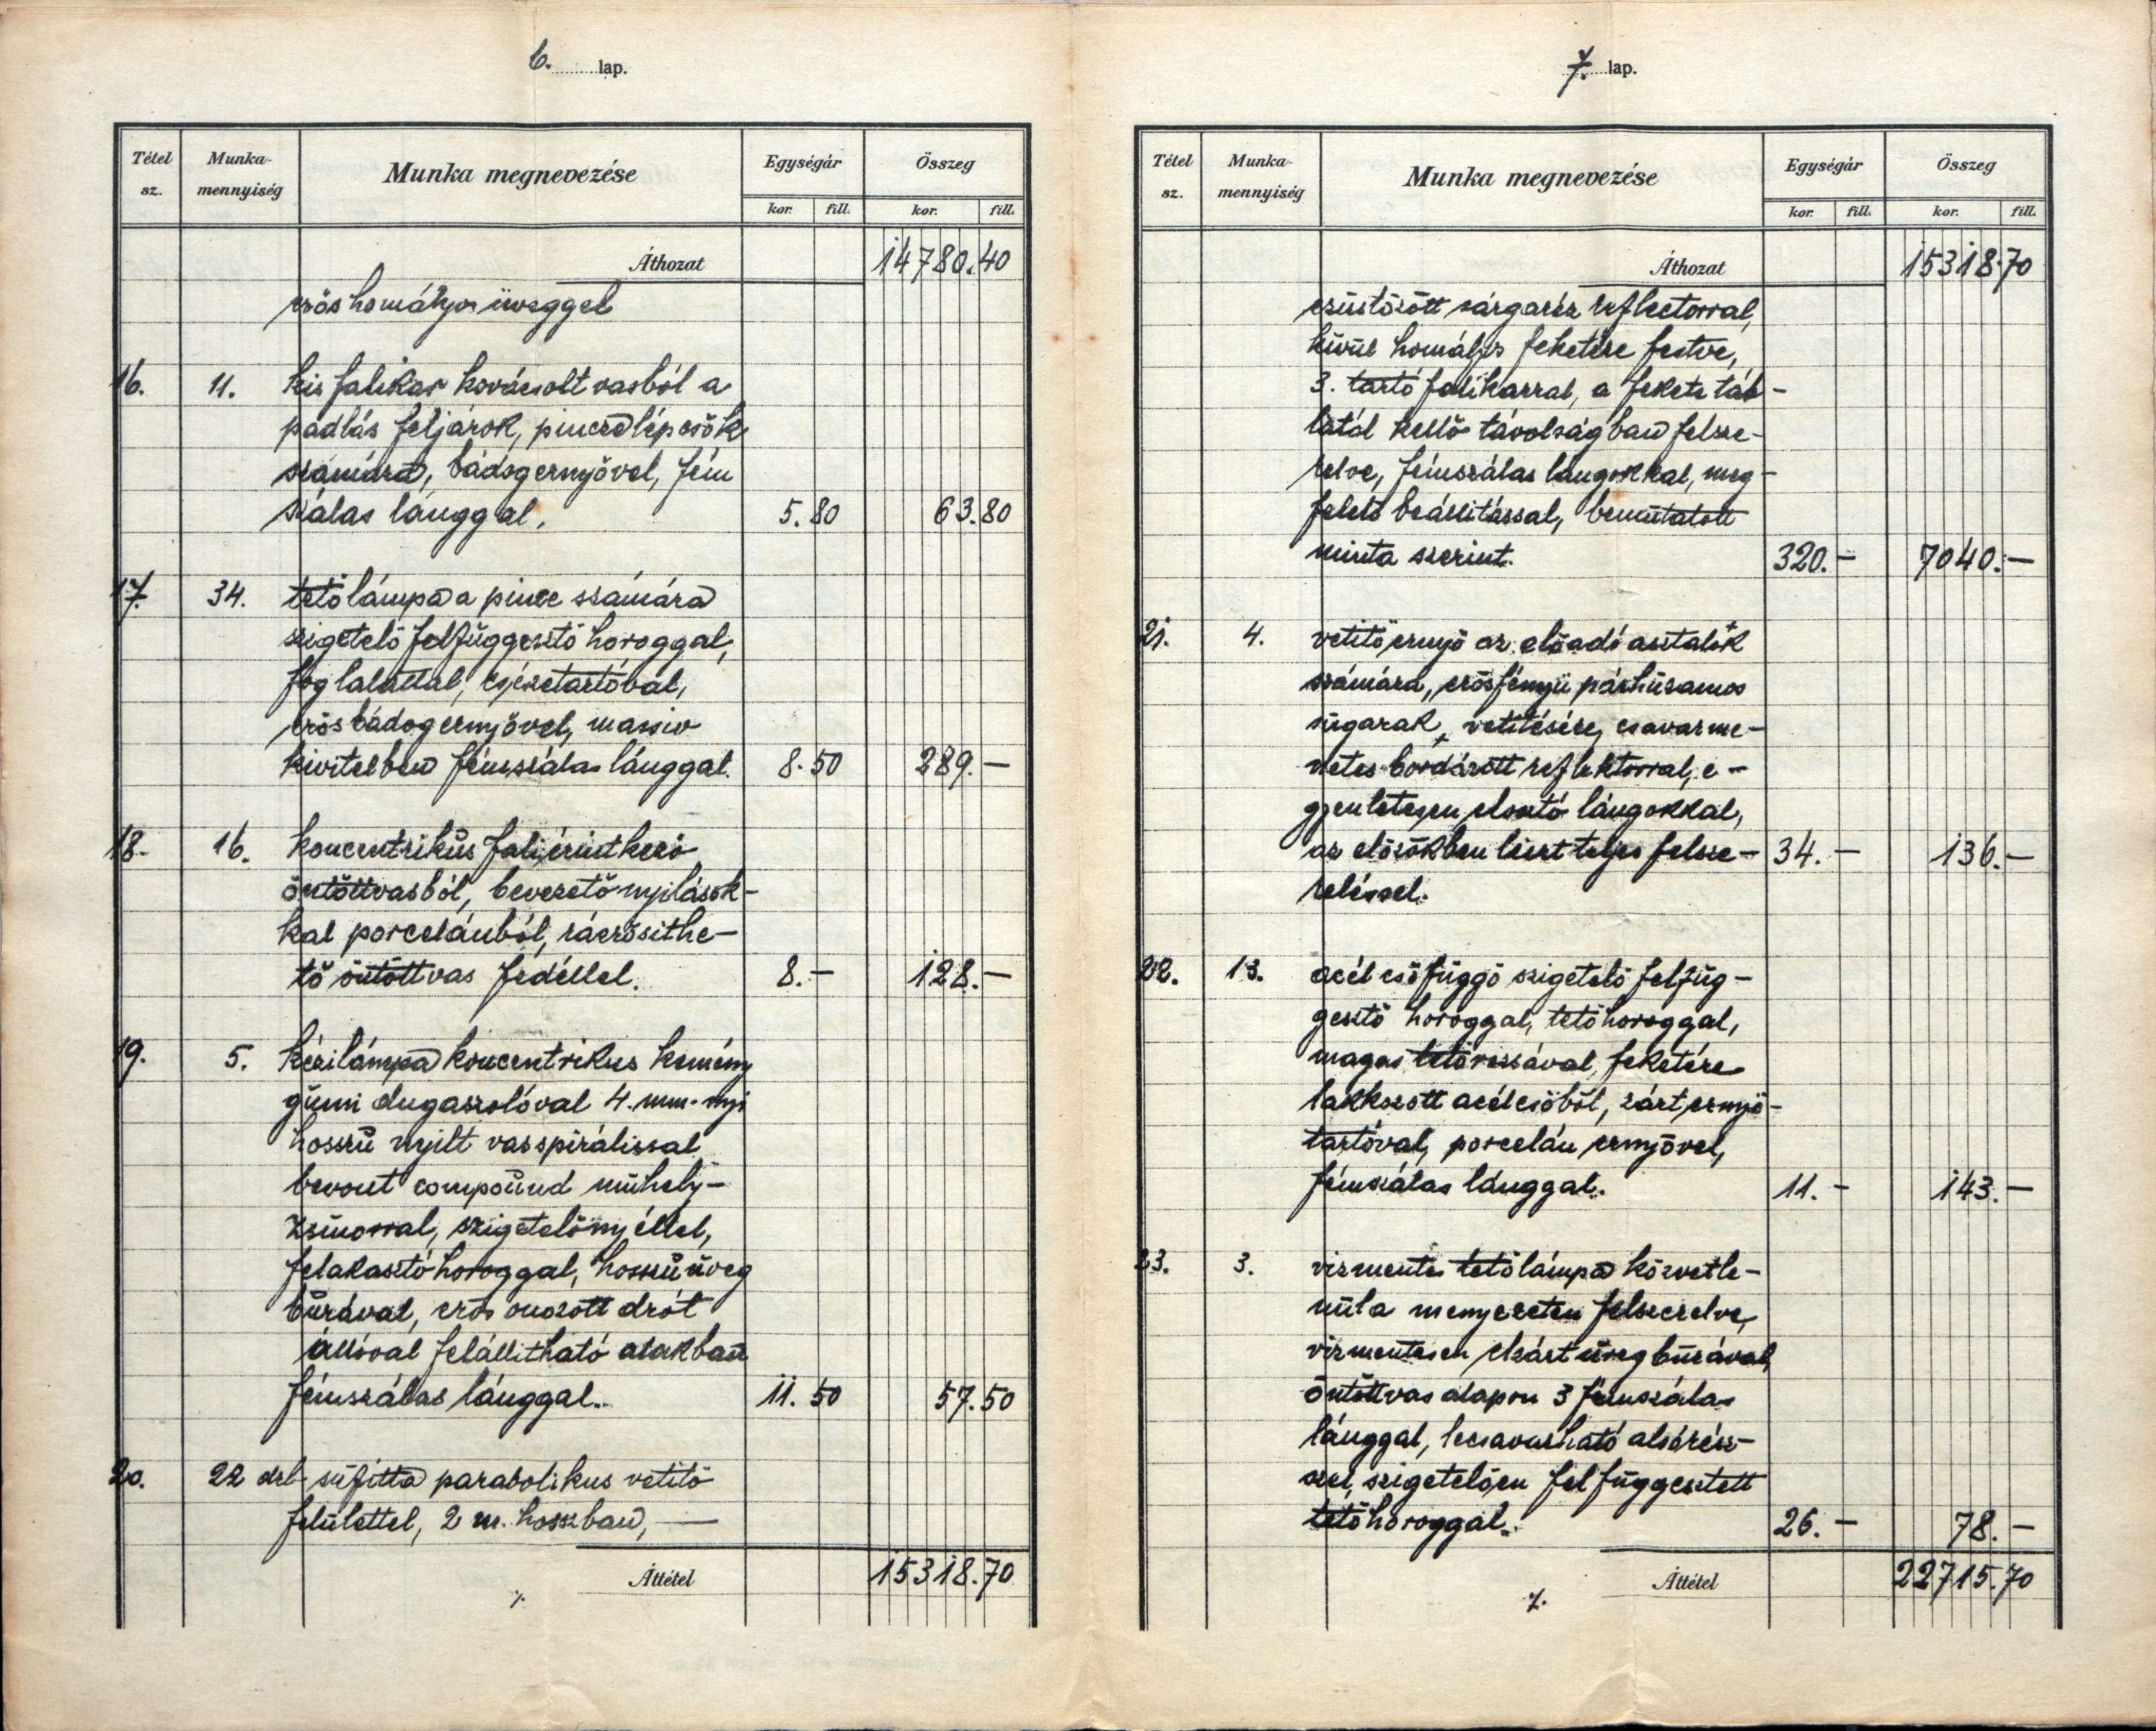 6. lap.
Tétel sz. Munka-mennyiség Munka megnevezése Egységár Összeg
kor. fill. kor. fill.
Áthozat 14780.40
erős homályos üveggel
16. 11. kis falikar kovácsolt vasból a
padlás feljárok, pince lépcsők
számára, bádogernyővel, fém
szálas lánggal. 5.80 63.80
17. 34. tetőlámpa a pince számára
szigetelő felfüggesztő horoggal,
foglalattal, csészetartóval,
erős bádogernyővel, massiv
kivitelben fémszálas lánggal. 8.50 289.—
18. 16. koncentrikus fali érintkező
öntöttvasból, bevezető nyilások-
kal porcelánból, ráerősithe-
tő öntöttvas fedéllel. 8.— 128.—
19. 5. kézilámpa koncentrikus kemény
gumi dugaszolóval 4. mm-nyi
hosszú nyilt vasspirálissal
bevont compound műhely-
zsinorral, szigetelőnyéllel,
felakasztó horoggal, hosszú üveg
burával, erős onozott drót
állóval felállitható alakban
fémszálas lánggal. 11.50 57.50
20. 22 drb sufitta parabolikus vetitő
felülettel, 2 m. hosszban, —
Áttétel 15318.70
⁒
7. lap.
Tétel sz. Munka-mennyiség Munka megnevezése Egységár Összeg
kor. fill. kor. fill.
Áthozat 15318.70
ezüstözött sárgaréz reflectorral,
kivül homályos feketére festve,
3. tartó falikarral, a fekete táb-
lától kellő távolságban felsze-
relve, fémszálas lángokkal, meg-
felelő beállitással, bemutatott
minta szerint. 320.— 7040.—
21. 4. vetitőernyő az előadó asztalok
számára, erősfényü párhuzamos
sugarak vetitésére, csavarme-
netes bordázott reflektorral, e-
gyenletesen elosztó lángokkal,
az előzőkben leirt teljes felsze- 34.— 136.—
reléssel.
22. 13. acél csőfüggő szigetelő felfüg-
gesztő horoggal, tetőhoroggal,
magas tetőrozsával, feketére
lakkozott acélcsőből, zárt ernyő-
tartóval, porcelán ernyővel,
fémszálas lánggal. 11.— 143.—
23. 3. vizmentes tetőlámpa közvetle-
nül a menyezeten felszerelve,
vizmentesen elzárt üvegburával,
öntöttvas alapon 3 fémszálas
lánggal, lecsavarható alsórész-
szel, szigetelően felfüggesztett
tetőhoroggal. 26.— 78.—
Áttétel 22715.70
⁒